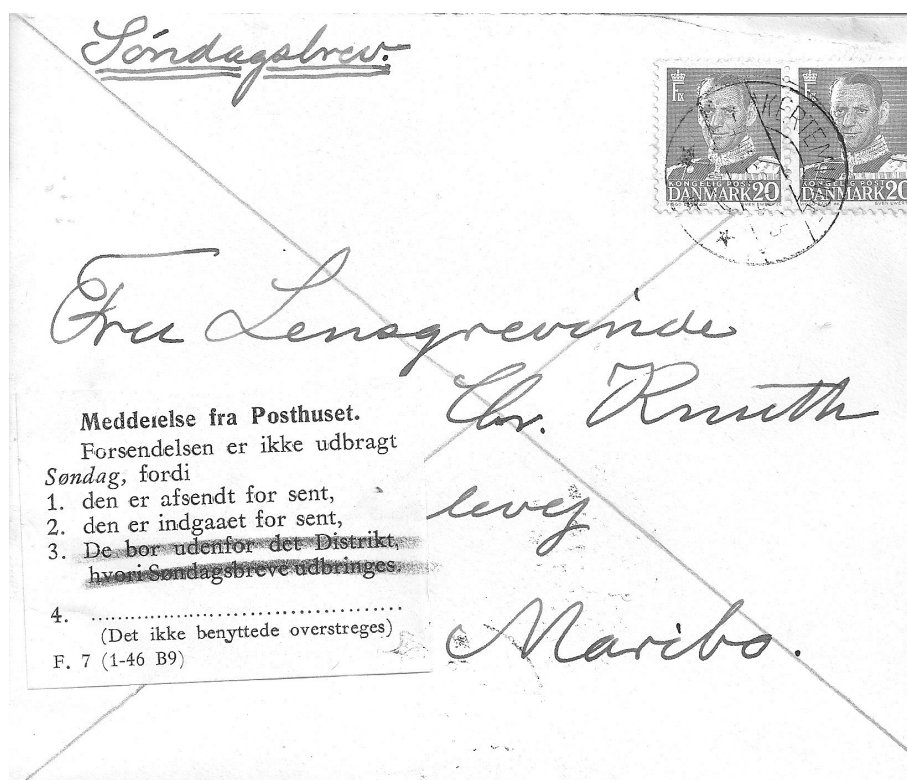 Søndagsbrev.
KONGELIG POST
DANMARK 20
KONGELIG POST
DANMARK 20
KERTEM
Fru Lensgrevinde
Chr. Knuth
levej
Maribo.
Meddelelse fra Posthuset.
Forsendelsen er ikke udbragt
Søndag, fordi
1. den er afsendt for sent,
2. den er indgaaet for sent,
3. De bor udenfor det Distrikt,
hvori Søndagsbreve udbringes.
4. ........................................
(Det ikke benyttede overstreges)
F. 7 (1-46 B9)